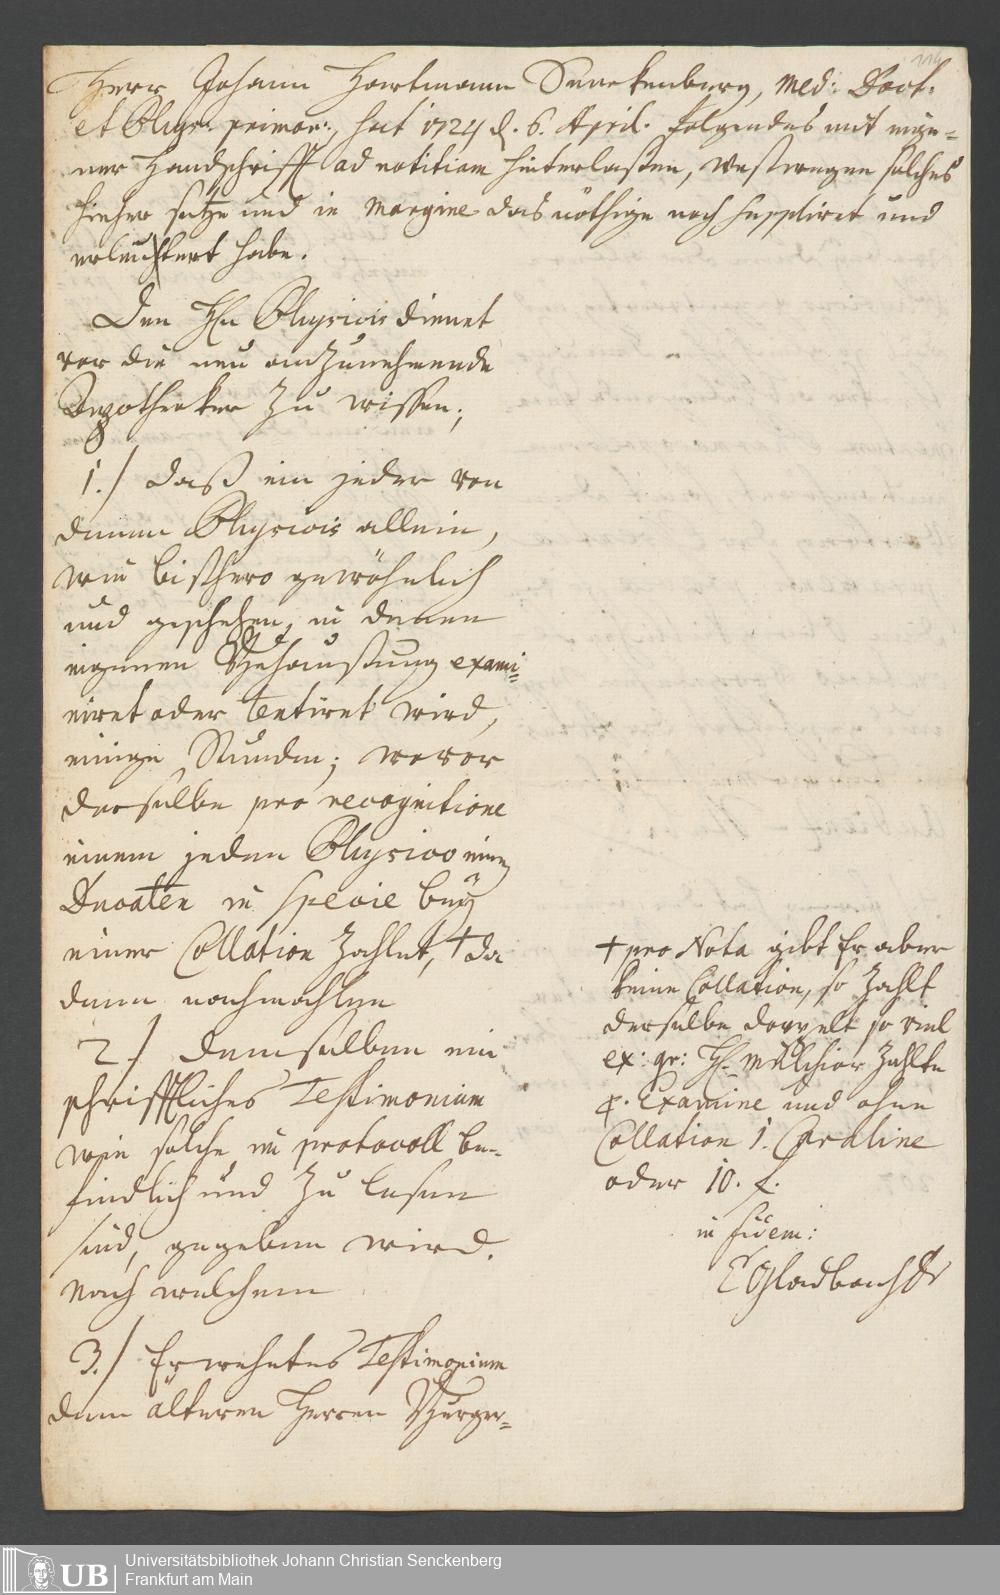 114
Herr Johann Hartmann Senckenberg, Med: Doct:
et Physic: primar:, hat 1724 d. 6. April. folgendes mit eige=
ner Handschrifft ad notitiam hinterlaßen, weswegen solches
hieher setze und in margine das nöthige noch suppliret und
erleuchtert habe.
Den Hln Physicis dienet
vor die neu anzunehmende
Apotheker zu wissen;
1./ daß ein jeder von
denen Physicis allein,
wie bißhero gewöhnlich
und geschehen, in denen
eigenen Behaußung exami=
niret oder tentiret wird,
einige Stunden; wovor
derselbe pro recognitione
einem jeden Physico einen
Ducaten in specie bey
einer Collation zahlet, † da
dann nachmahlen
2./ demselben ein
schrifftliches Testimonium
wie solche im protocoll be-
findlich und zu lesen
sind, gegeben wird.
Nach welchem
3./ Erwehntes Testimonium
dem älteren Herren Burger=
† pro Nota gibt Er aber
keine Collation, so zahlt
derselbe doppelt so viel
ex: gr: H. Melchior zahlte
p. Examine und ohne
Collation 1. Caroline
oder 10. f.
in fidem:
E Gladbach Dr
UB
Universitätsbibliothek Johann Christian Senckenberg
Frankfurt am Main